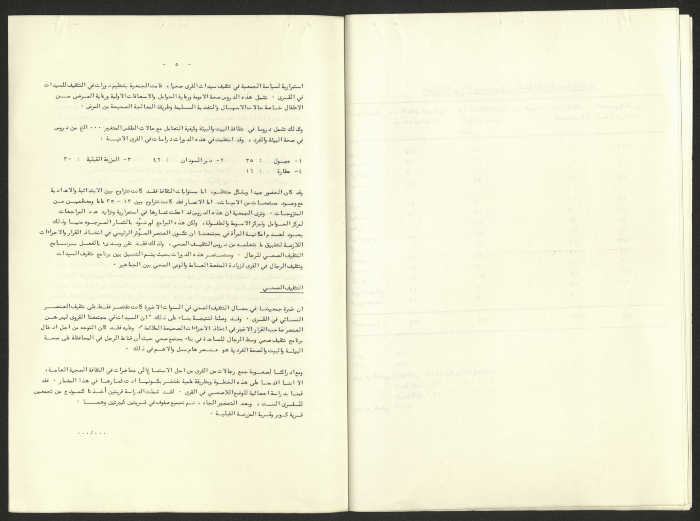 - ٥ -
استمرارية لسياسة الجمعية في تثقيف سيدات القرى صحيا ، قامت الجمعية بتنظيم دورات في التثقيف للسيدات
في القرى . تشمل هذه الدروس صحة الامومة ورعاية الحوامل والاسعافات الاولية ورعاية المرضى مــن
الاطفال خاصة حالات الاسهال والتغذية السليمة وطريقة المعالجة الصحيحة من المرض .
وكذلك تشمل دروسا في نظافة البيت والبيئة وكيفية التعامل مع حالات الطقس المتغير ... الخ من دروس
في صحة البيئة والفرد ، وقد انتظمت في هذه الدورات دارسات في القرى الاتيـــة :
١- عجـول : ٣٥ ٢- دير السودان : ٤٢ ٣- المزرعة القبلية : ٣٠
٤- عطارة : ١٦
وقد كان الحضور جيدا وبشكل منتظم ، اما مستويات الثقافة فقـد كانت تتراوح بين الابتدائية والاعدادية
مع وجود مستمعـات من الاميـات . اما الاعمار فقد كانت تتراوح بين ١٣ - ٣٥ عاما ومعظمهـن مـن
المتزوجـات . وترى الجمعية ان هذه الدروس قد اعطت ثمارها في استمرارية وتزايد عدد المراجعات
لمركز الحوامل ولمركز الامومة والطفولة ، ولكن هذه البرامج لم تـؤد بالثمار المـرجـوه منهـا وذلك
يعـود لعـدم امكانيـة المرأة في مجتمعنـا ان تكون العنصر المـؤثر الرئيسي في اتخـاذ القرار والاجراءات
اللازمـة لتطبيق ما تتعلمـه من دروس التثقيـف الصحي . ولذلك فقـد تقرر وبـدئ بالفعـل ببـرنامج
التثقيف الصحي للرجال . وستستمر هذه الدورات بحيث يتم التنسيق بين برنامج تثقيف السيدات
وتثقيف الرجال في القرى لزيادة المنفعة العـامة والوعي الصحي بين الجماهير .
التثقيف الصحـي
ان خبرة جمعيتنـا في مجـال التثقيف الصحي في السنوات الاخيرة كانت تقتصر فقـط على تثقيف العنصـر
النسـائي في القـرى . وقـد وصلنا لنتيجـة بناء على ذلك " ان السيدات في مجتمعنا القروي ليس هـن
العنصر صاحب القرار الاخير في اتخاذ الاجراءات الصحيحة الملائمة " . وعليه فقـد كان التوجه من اجل ادخال
برنامج تثقيف صحي وسط الرجال للمساعدة في بناء مجتمع صحي حيث أن قناعة الرجل في المحافظة على صحة
البيئـة والبيت والصحة الفردية هو عنـصر هام بـل والاهـم في ذلك .
ومع ادراكنـا لصعـوبة جمع رجالات من القرى من اجل الاستماع الى محاضرات في الثقافة الصحية العامة ،
الا اننـا اقدمنـا على هذه الخطـوة وبطريقة علمية نفتخـر بكـونهـا اتت ثمـارهـا في هذا المضمـار . فقد
قمنـا بدراسـة احصائيـة للوضع اللاصحـي في القرى . لقـد شملت الدراسة قريتين أخـذتا كنمـوذج من تجمعين
للقـرى الست . وبعد التحضير الجاد ، تم تجميع صفوف في قريتين كبيرتين وهمـا :
قرية كوبر وقرية المزرعة القبلية .
.../...